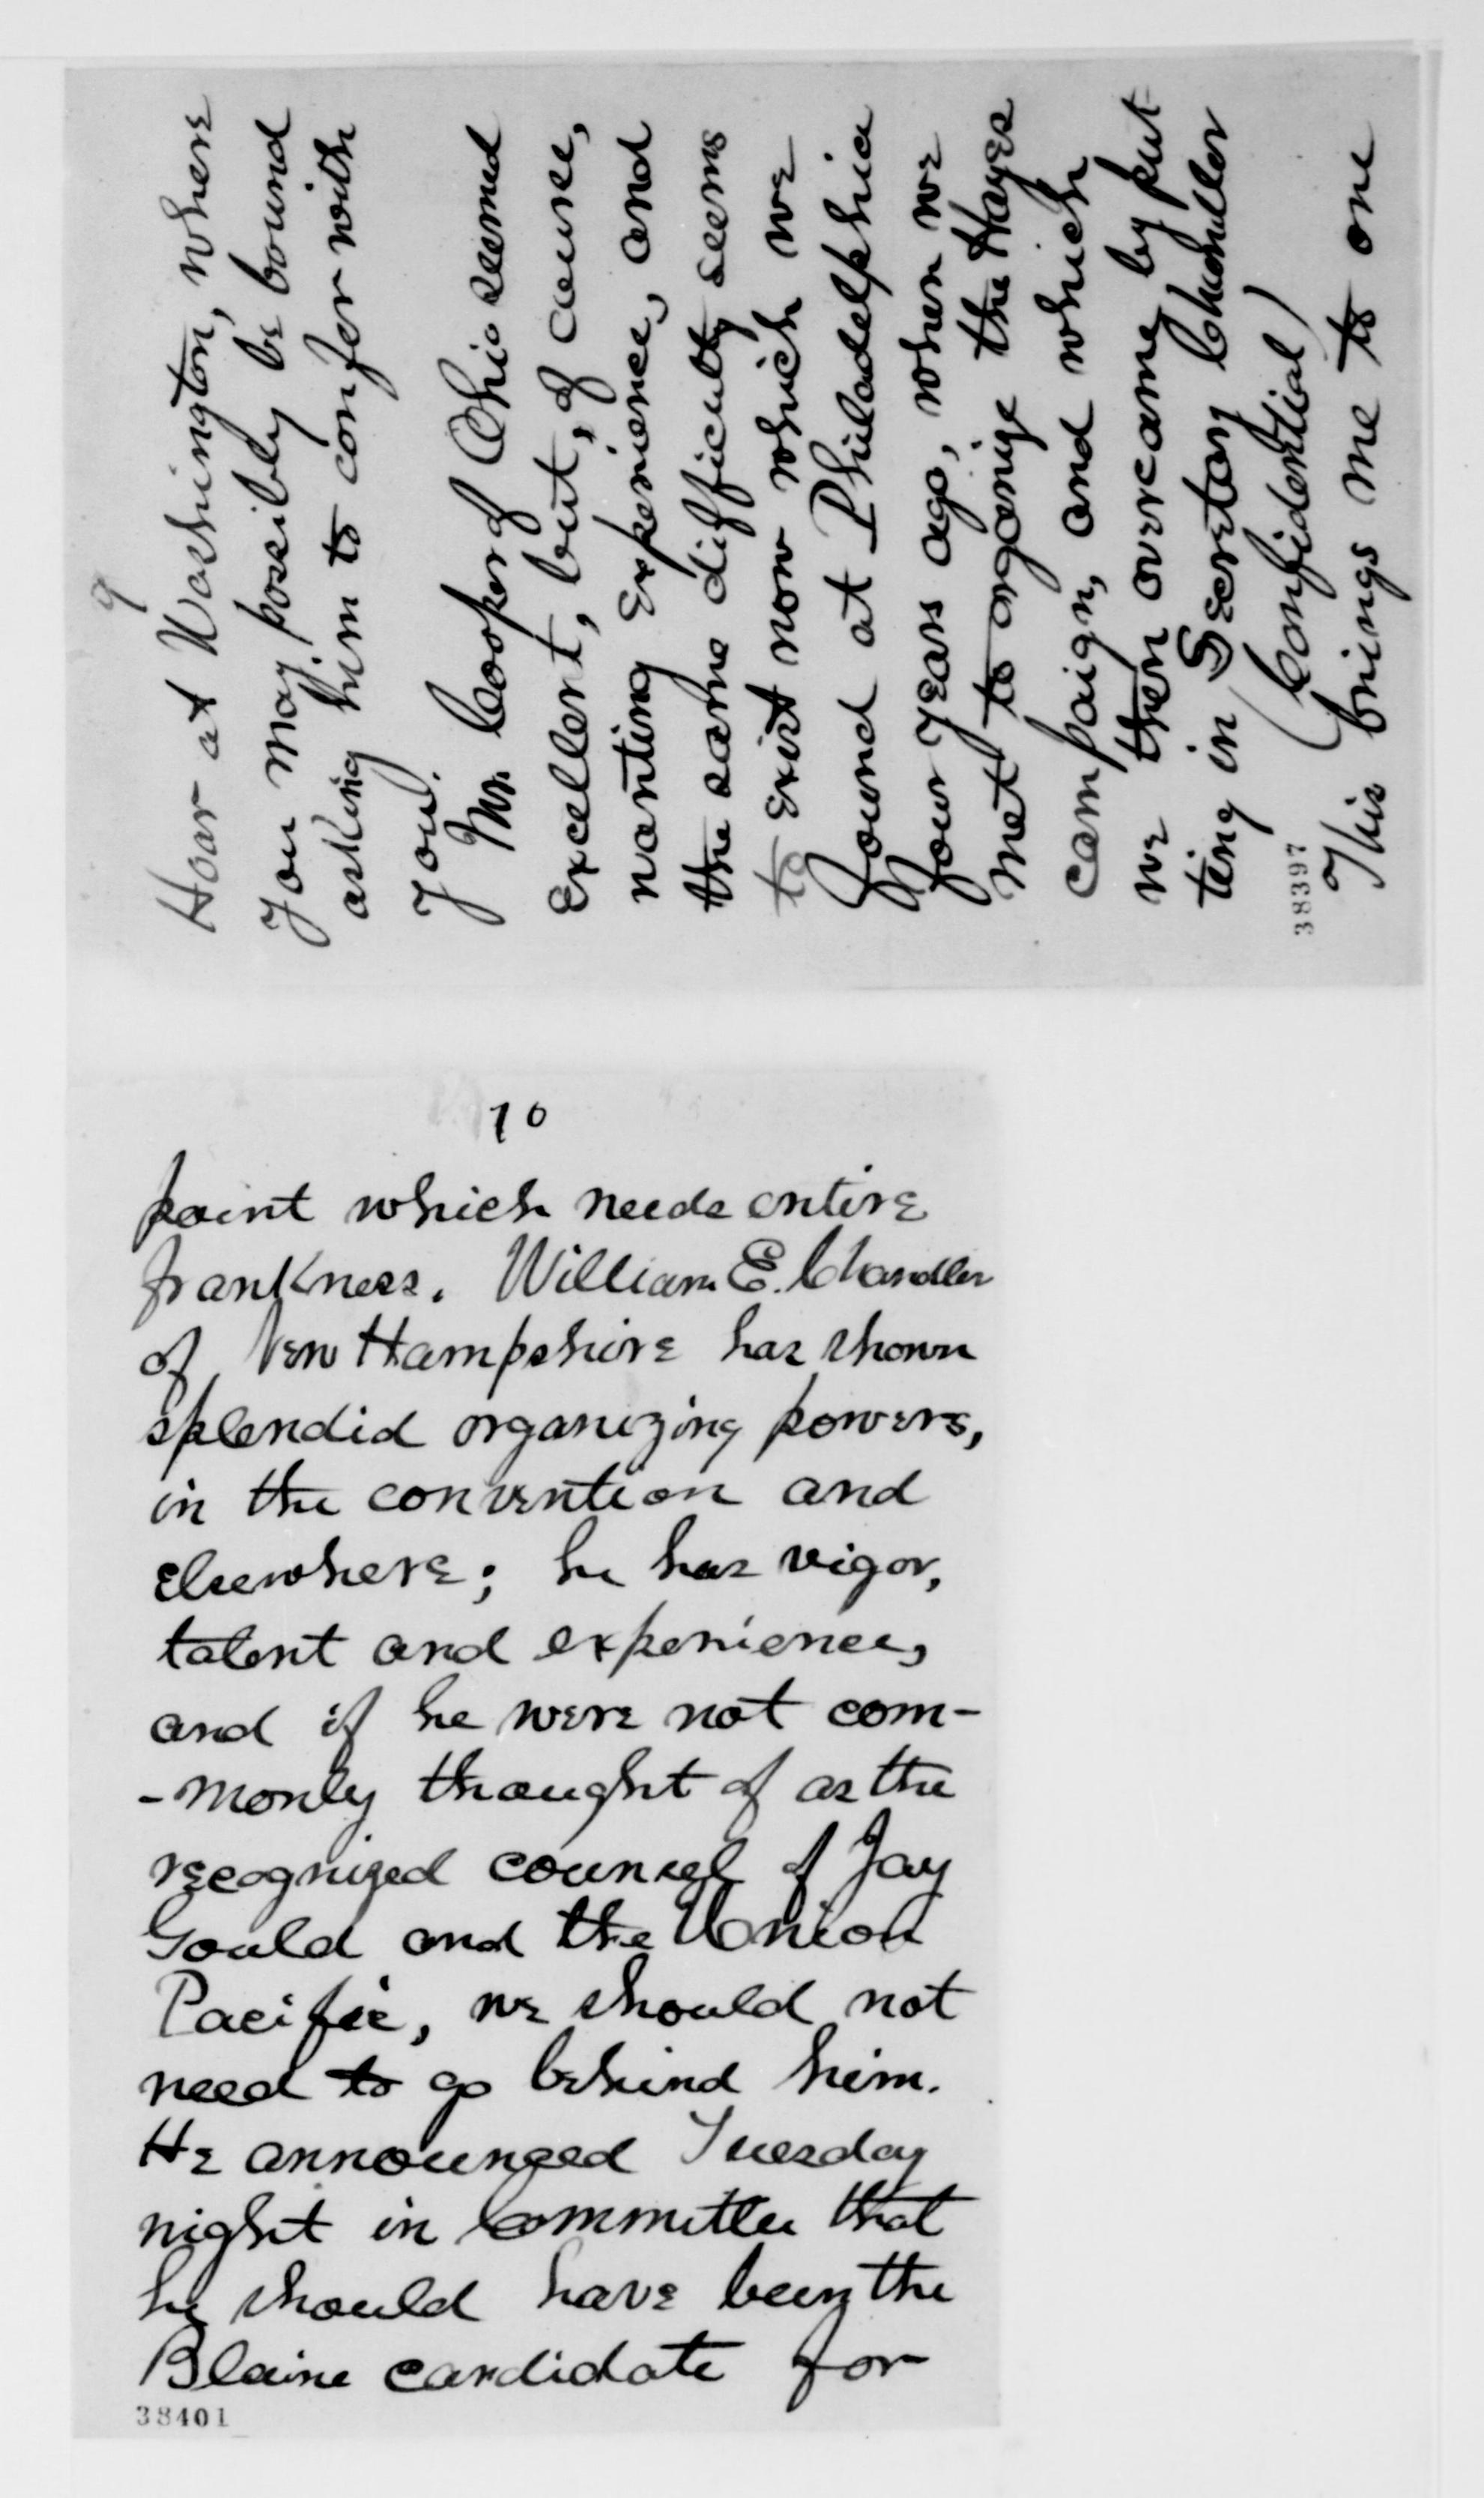 9
Hoar at Washington, where
you may possibly be bound
asking him to confer with
you.
Mr. Cooper of Ohio seemed
excellent, but, of course,
wanting experience, and
the same difficulty seems
to exist now which we
found at Philadelphia
four years ago, when we
met to organize the Hayes
campaign, and which
we then overcame by put-
ting in Secretary Chandler
(Confidential)
This brings me to one
38397
10
point which needs entire
frankness. William E. Chandler
of New Hampshire has shown
splendid organizing powers,
in the convention and
elsewhere; he has vigor,
talent and experience,
and if he were not com-
-monly thought of as the
recognized counsel of Jay
Gould and the Union
Pacific, we should not
need to go behind him.
He announced Tuesday
night in Committee that
he should have been the
Blaine candidate for
38401